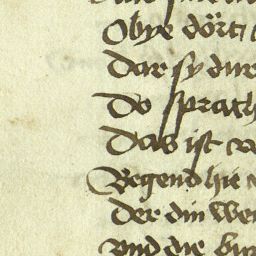 Obye dört
Dar sy dur
Do sprach
Das ist
Begend hie
Der din
vnd die